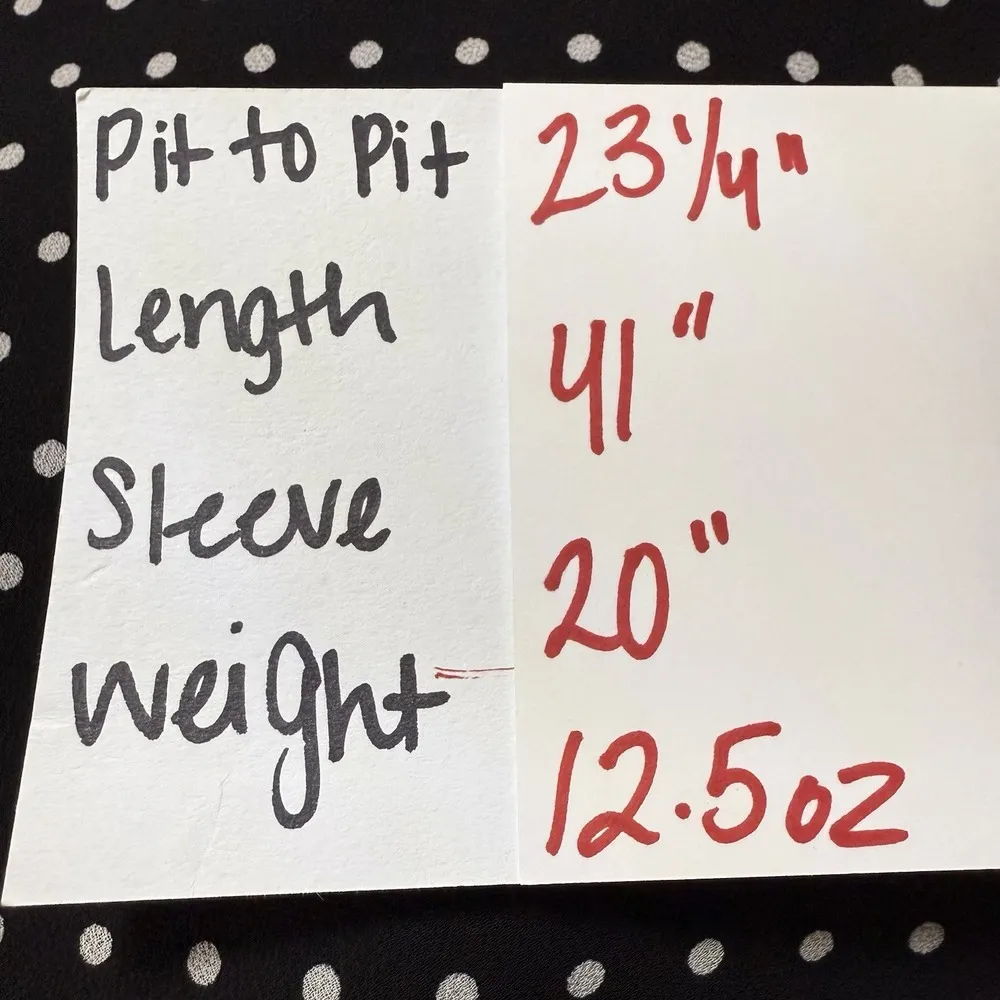 Pit to Pit 23 1/4"
Length 41"
Sleeve 20"
weight 12.5oz